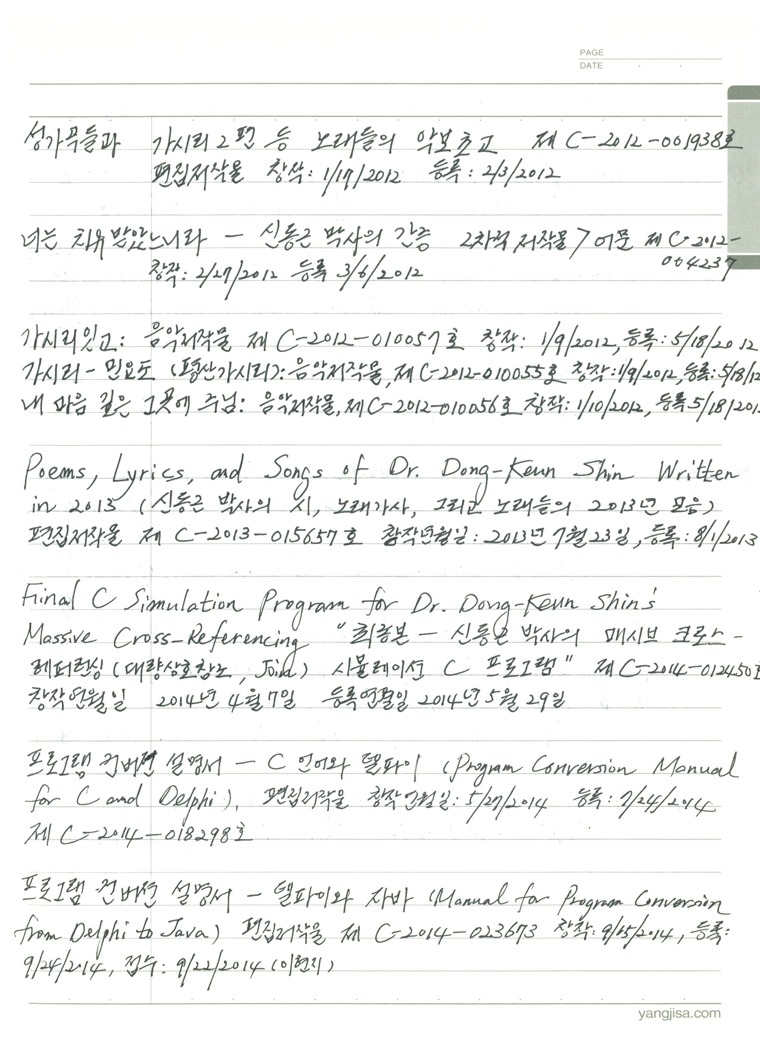 PAGE
DATE
성가곡들과 가시리 2편 등 노래들의 악보초고 제 C-2012-001938호
편집저작물 창작: 1/17/2012 등록: 2/3/2012
너는 치유 받았느니라 - 신동근 박사의 간증 2차적 저작물 > 어문 제 C-2012-
004237
창작: 2/27/2012 등록 3/6/2012
가시리잇고: 음악저작물 제 C-2012-010057호 창작: 1/9/2012, 등록: 5/18/2012
가시리 - 민요조 (평산가시리): 음악저작물, 제 C-2012-010055호 창작: 1/9/2012, 등록: 5/18/12
내 마음 깊은 그곳에 주님: 음악저작물, 제 C-2012-010056호 창작: 1/10/2012, 등록 5/18/201
Poems, Lyrics, and Songs of Dr. Dong-Keun Shin Written
in 2013 (신동근 박사의 시, 노래가사, 그리고 노래들의 2013년 모음)
편집저작물 제 C-2013-015657호 창작년월일: 2013년 7월 23일, 등록: 8/1/2013
Final C Simulation Program for Dr. Dong-Keun Shin's
Massive Cross-Referencing "최종본 - 신동근 박사의 매시브 크로스-
레퍼런싱 (대량상호참조, Join) 시뮬레이션 C 프로그램" 제 C-2014-012450호
창작연월일 2014년 4월 7일 등록연월일 2014년 5월 29일
프로그램 컨버젼 설명서 - C 언어와 델파이 (Program Conversion Manual
for C and Delphi), 편집저작물 창작연월일: 5/27/2014 등록: 7/24/2014
제 C-2014-018298호
프로그램 컨버젼 설명서 - 델파이와 자바 (Manual for Program Conversion
from Delphi to Java) 편집저작물 제 C-2014-023673 창작: 9/15/2014, 등록:
9/24/2014, 접수: 9/22/2014 (이현지)
yangjisa.com